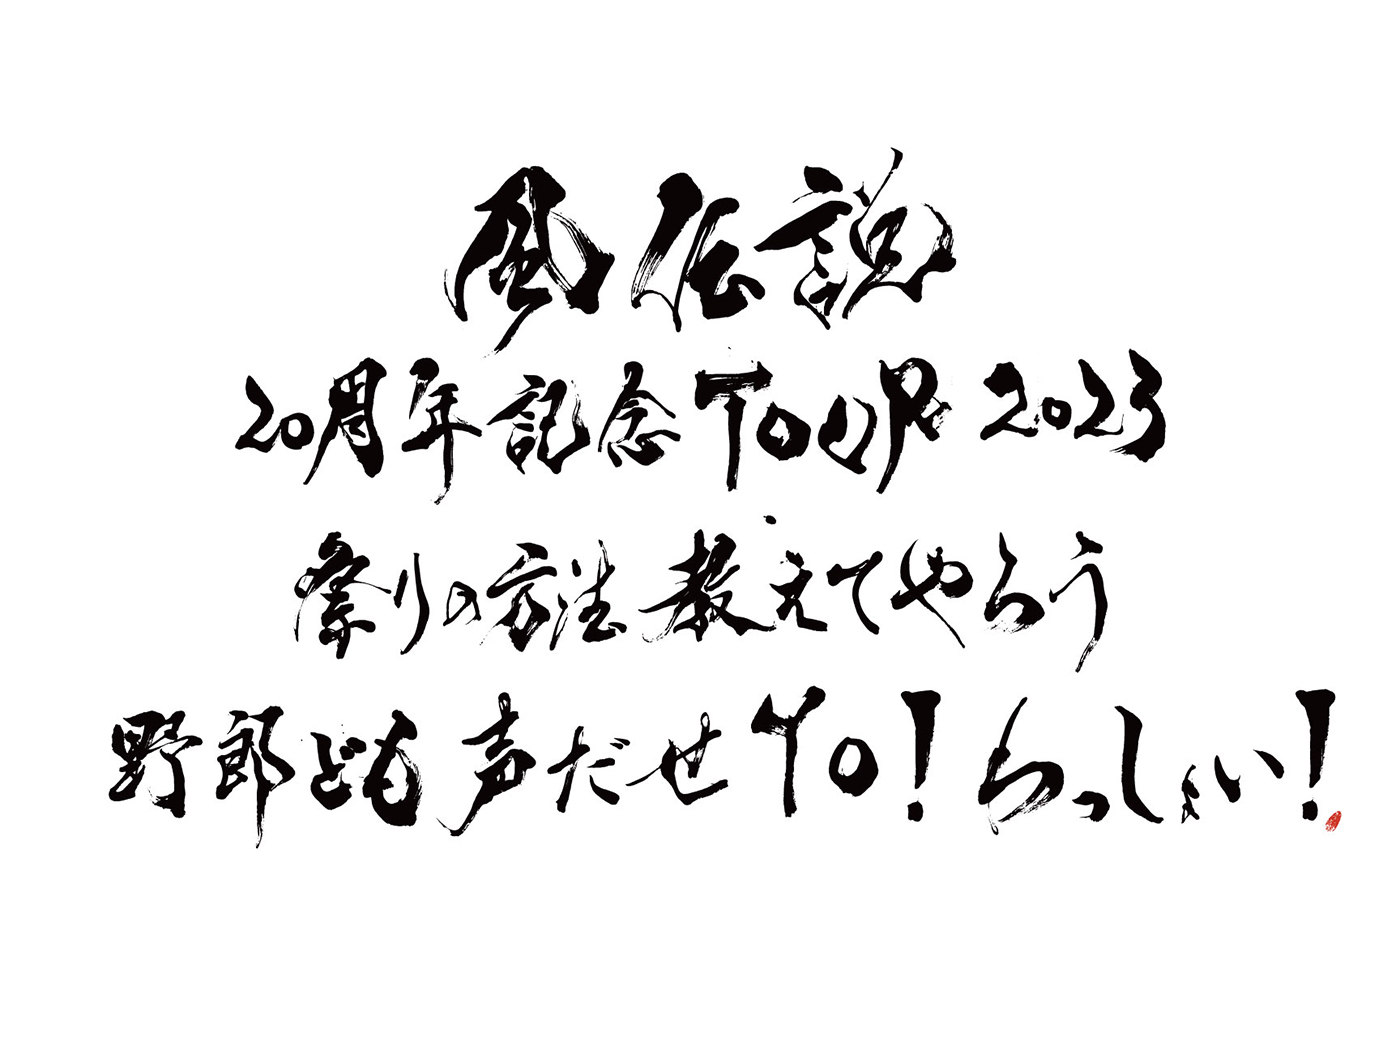 風伝説
20周年記念TOUR 2023
祭りの方法 教えてやろう
野郎ども 声だせ YO! わっしょい!